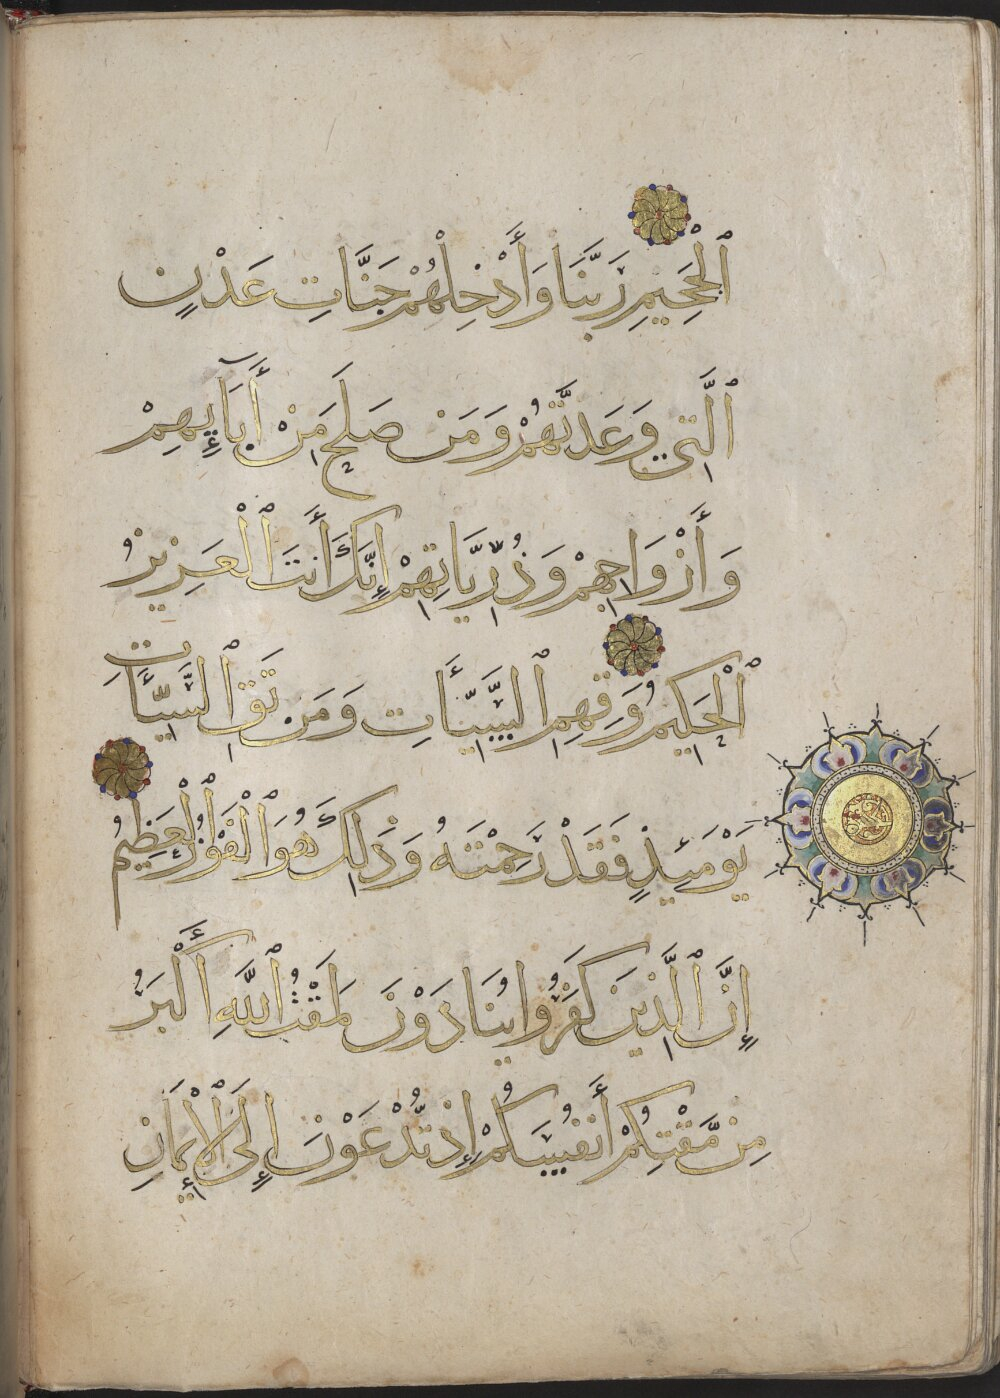 ٱلْجَحِيمِ رَبَّنَا وَأَدْخِلْهُمْ جَنَّاتِ عَدْنٍ
ٱلَّتِي وَعَدتَّهُمْ وَمَن صَلَحَ مِنْ أَبَآئِهِمْ
وَأَزْوَاجِهِمْ وَذُرِّيَّاتِهِمْ إِنَّكَ أَنتَ ٱلْعَزِيزُ
ٱلْحَكِيمُ وَقِهِمُ ٱلسَّيِّئَاتِ وَمَن تَقِ ٱلسَّيِّئَاتِ
يَوْمَئِذٍ فَقَدْ رَحِمْتَهُ وَذَلِكَ هُوَ ٱلْفَوْزُ ٱلْعَظِيمُ
إِنَّ ٱلَّذِينَ كَفَرُوا يُنَادَوْنَ لَمَقْتُ ٱللَّهِ أَكْبَرُ
مِن مَّقْتِكُمْ أَنفُسَكُمْ إِذ تُدْعَوْنَ إِلَى ٱلْإِيمَانِ